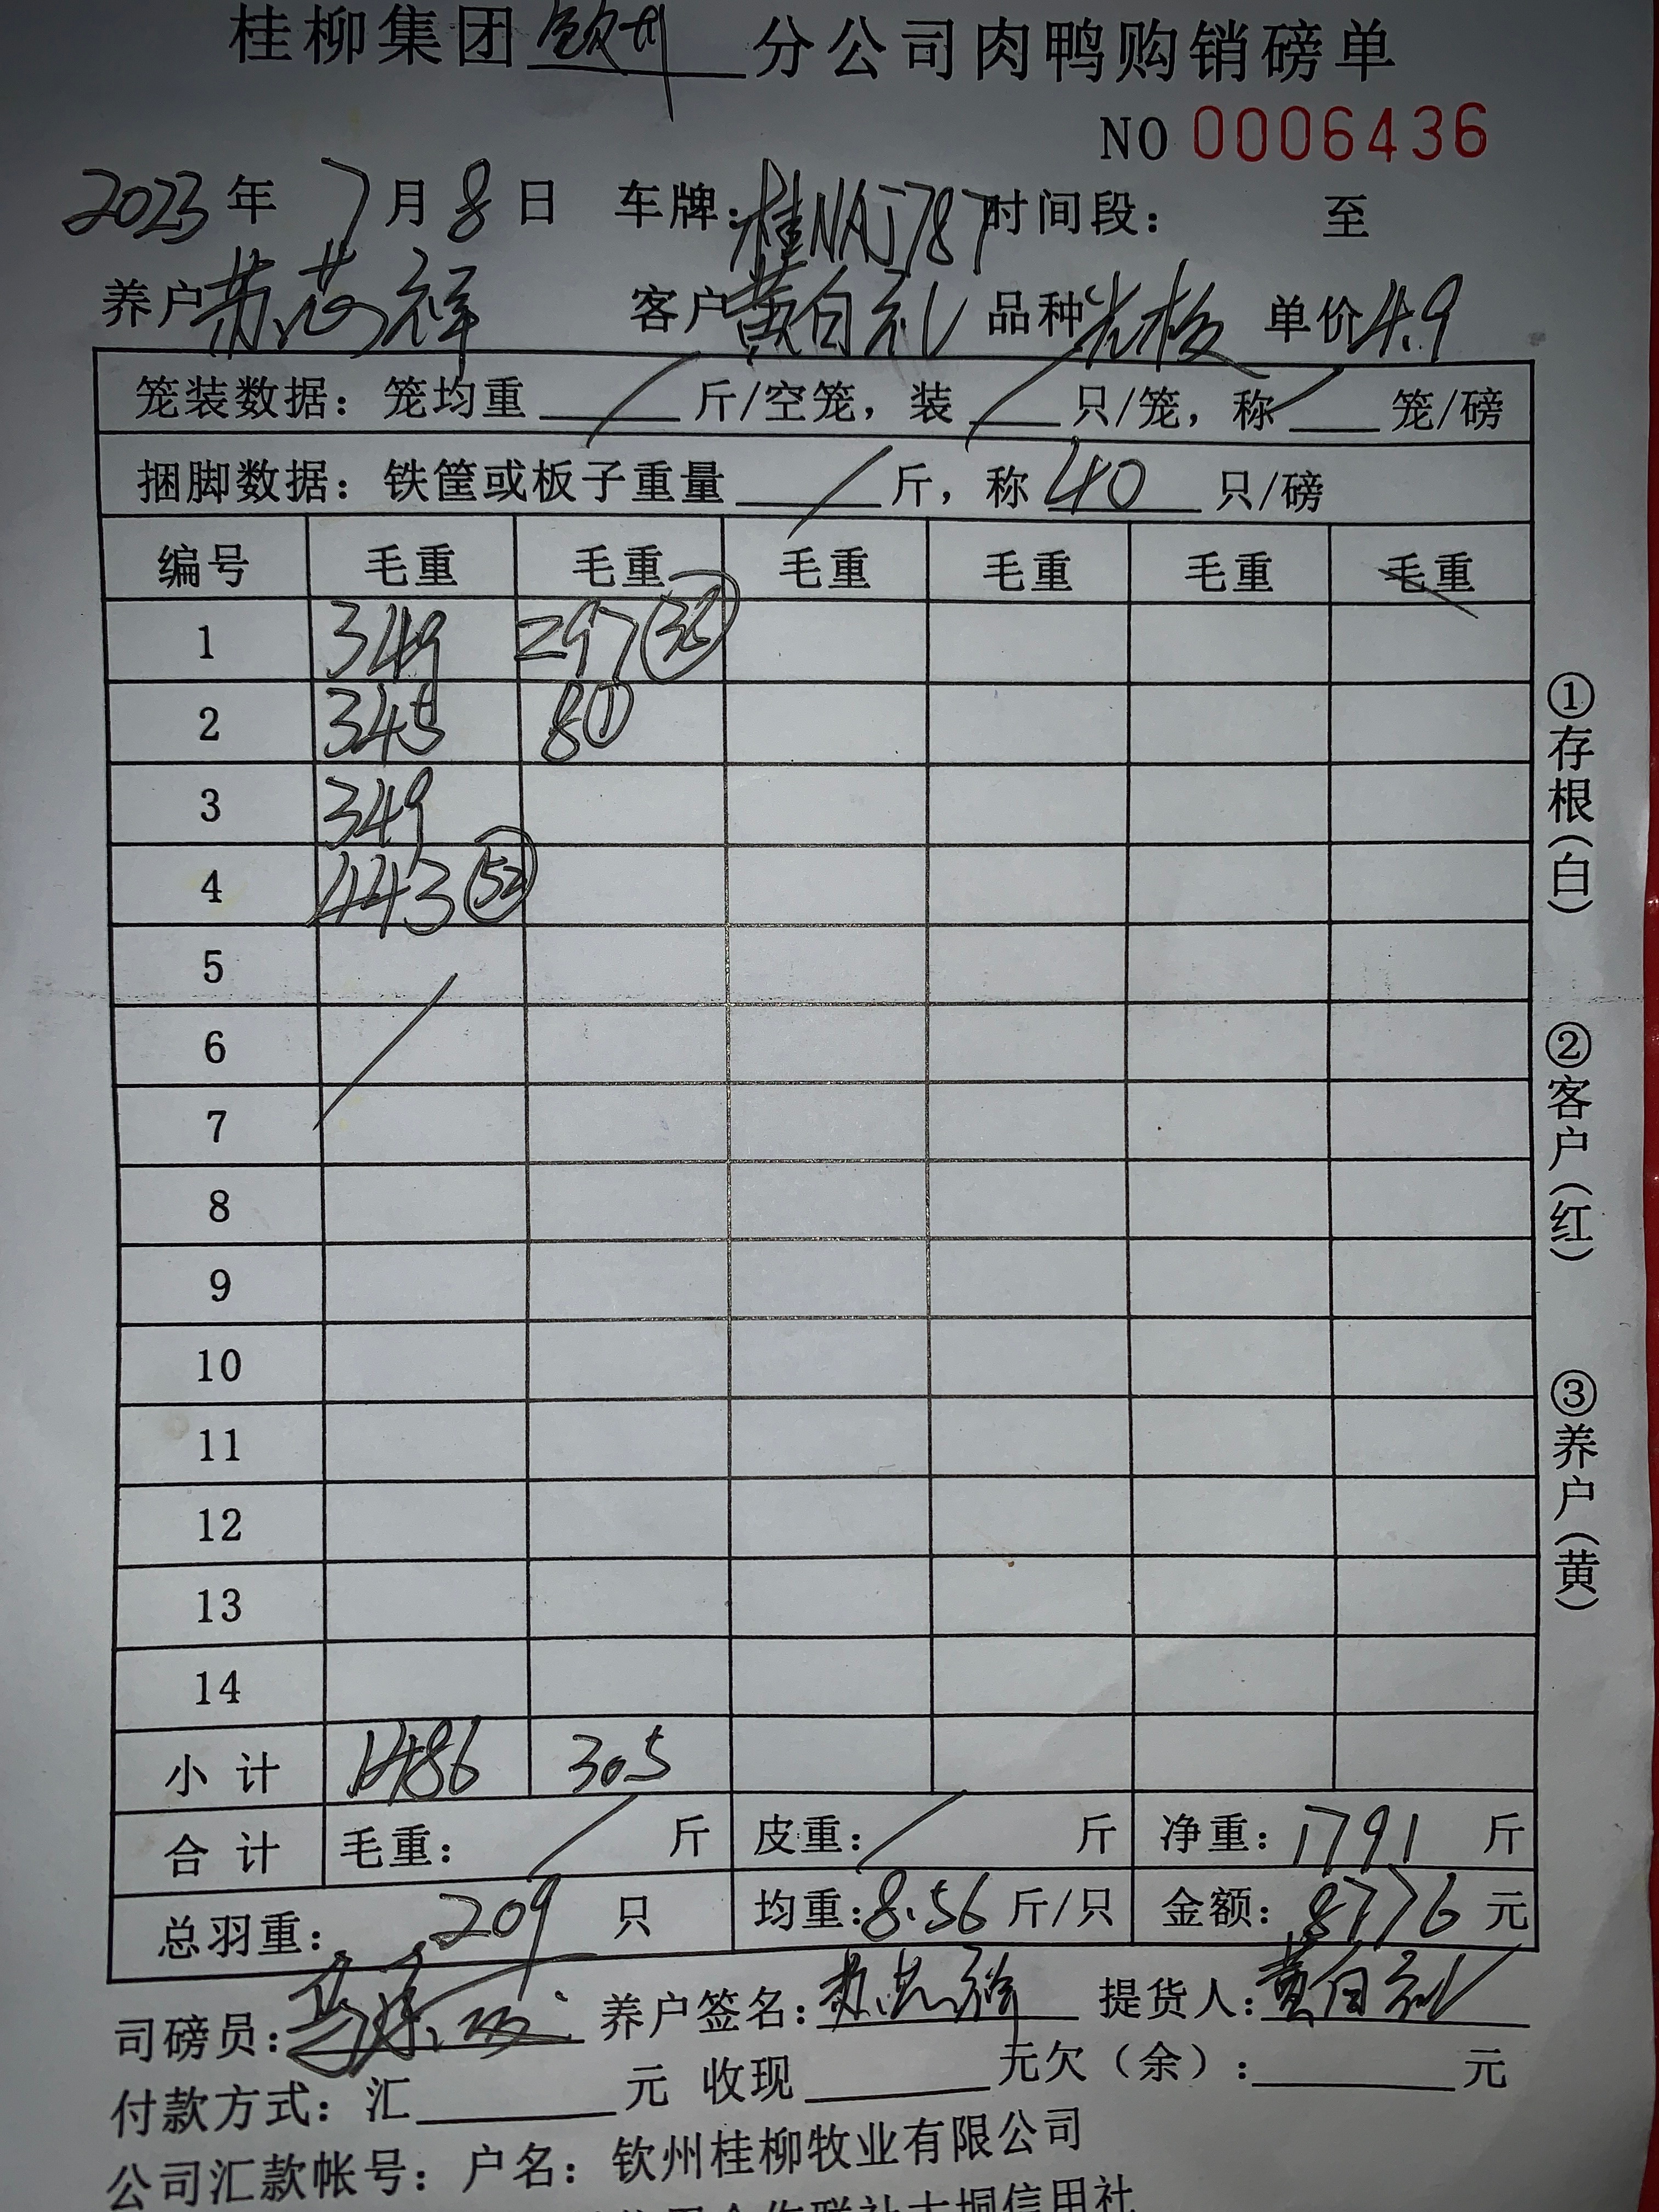 桂柳集团钦州分公司肉鸭购销磅单
NO 0006436
2023年 7月8日 车牌:桂NAJ787 时间段: 至
养户 客户黄自礼 品种 单价4.9
笼装数据: 笼均重 / 斤/空笼, 装 / 只/笼, 称 / 笼/磅
捆脚数据: 铁筐或板子重量 / 斤, 称 40 只/磅
编号 毛重 毛重 毛重 毛重 毛重 毛重
1 349 297
2 345 8①
3 349
4 443 (52)
5
6
7
8
9
10
11
12
13
14
小计 1486 305
合计 毛重: / 斤 皮重: / 斤 净重: 1791 斤
总羽重: 209 只 均重:8.56斤/只 金额: 8776元
司磅员: 养户签名: 提货人:黄自礼
付款方式: 汇 元 收现 元欠(余): 元
公司汇款帐号: 户名: 钦州桂柳牧业有限公司
①存根(白)
②客户(红)
③养户(黄)